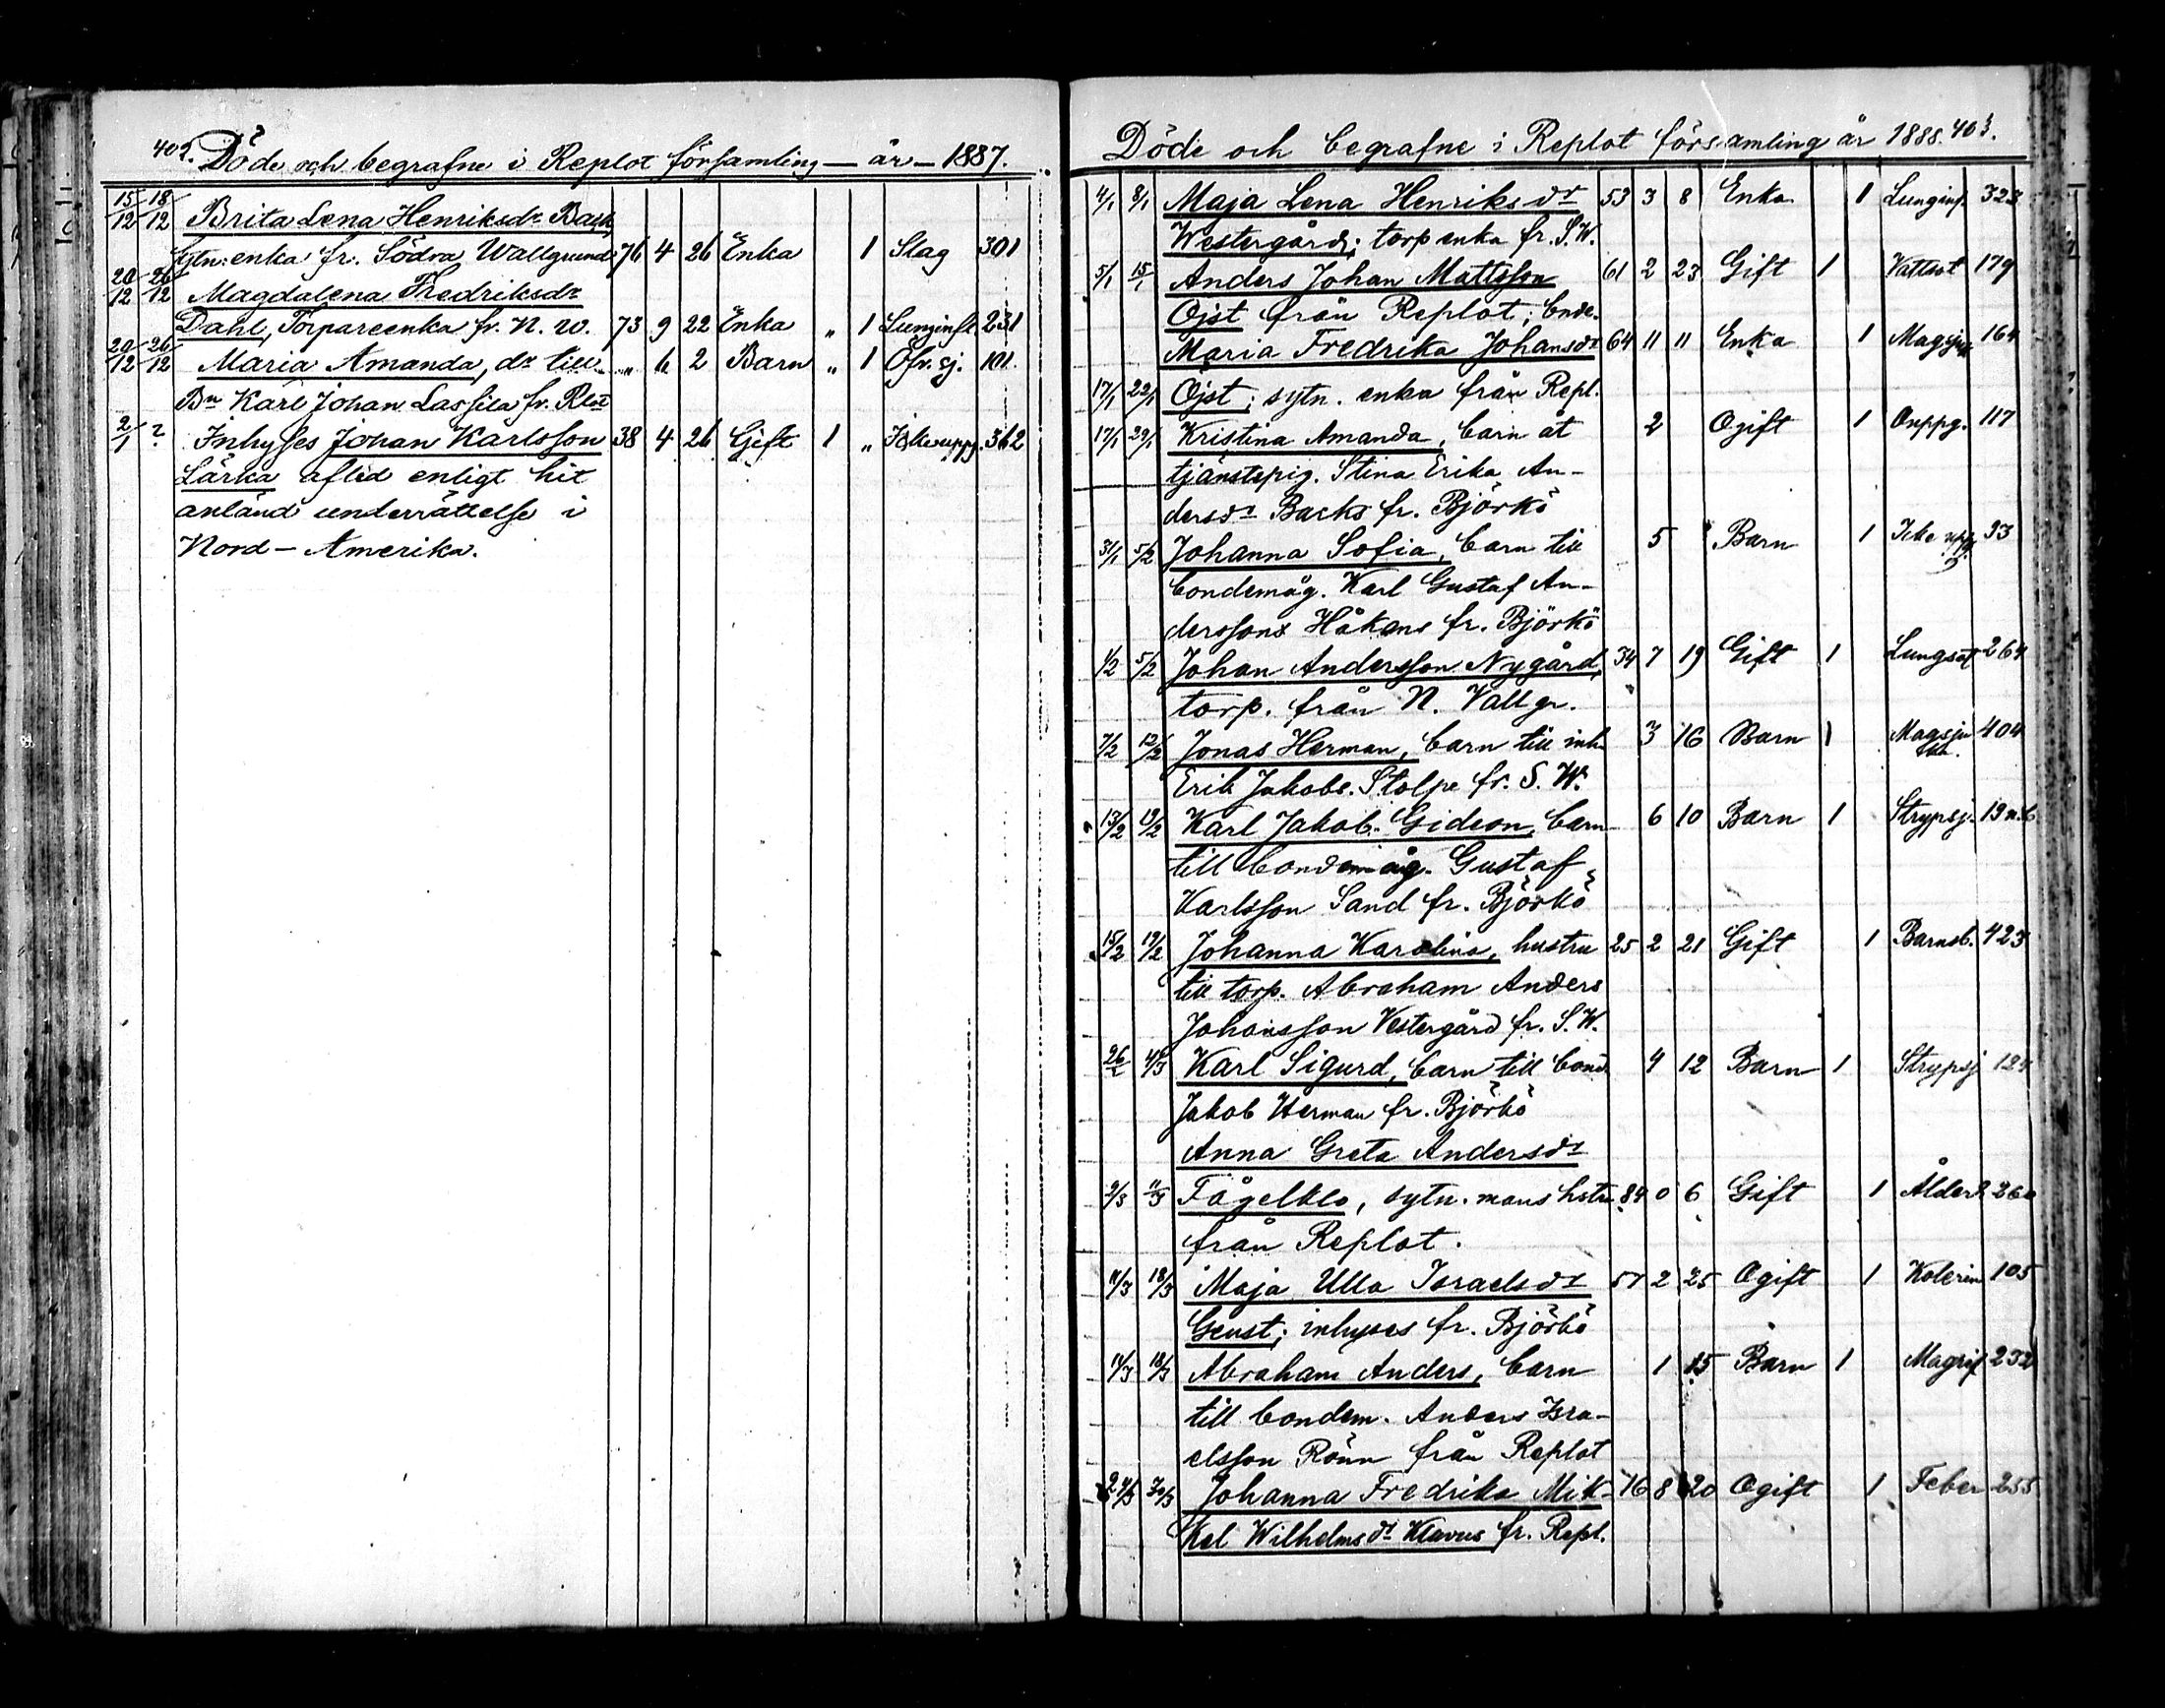 402. Döde och begrafne i Replot församling — år — 1887.
15/12 18/12 Brita Lena Henriksdr Back,
Sytn: enka fr. Södra Wallgrund 76 4 26 Enka 1 Slag 301
20/12 26/12 Magdalena Fredriksdr
Dahl, Torpareenka fr. N. W. 73 9 22 Enka „ 1 Lunginfl. 231
20/12 26/12 Maria Amanda, dr till „ 6 2 Barn „ 1 Öfr. sj. 101.
Bn Karl Johan Lassila fr. Rlot
2/1 ? Inhyses Johan Karlsson 38 4 26 Gift 1 „ Icke uppg. 362
Lärka aflid enligt hit
anländ underrättelse i
Nord - Amerika.
Döde och begrafne i Replot församling år 1888. 403.
4/1 8/1 Maja Lena Henriksdr 53 3 8 Enka 1 Lunginf. 323
Westergård; torp enka fr. S. W.
5/1 15/1 Anders Johan Mattsson 61 2 23 Gift 1 Vattsot 179
Öjst från Replot; bonde.
Maria Fredrika Johansdr 64 11 11 Enka 1 Magsjuk 164
17/1 22/1 Öjst; sytn. enka från Repl.
17/1 29/1 Kristina Amanda, barn åt 2 Ogift 1 Ouppg. 117
tjänstepig. Stina Erika An-
dersdr Backs fr. Björkö
31/1 5/2 Johanna Sofia, barn till 5 Barn 1 Icke uppg. 33
bondemåg. Karl Gustaf An-
derssons Håkans fr. Björkö
1/2 5/2 Johan Andersson Nygård, 34 7 19 Gift 1 Lungsot 264
torp. från N. Vallgr.
7/2 12/2 Jonas Herman, barn till inh. 3 16 Barn 1 Magsju 404
Erik Jakobs. Stolpe fr. S. W.
13/2 19/2 Karl Jakob Gideon, barn 6 10 Barn 1 Strypsj. 19 n. 6
till bondemåg. Gustaf
Karlsson Sand fr. Björkö
15/2 19/2 Johanna Karolina, hustru 25 2 21 Gift 1 Barnsb. 423
till torp. Abraham Anders
Johansson Vestergård fr. S. W.
26/2 4/3 Karl Sigurd, barn till bond. 4 12 Barn 1 Strypsj 124
Jakob Herman fr. Björkö
Anna Greta Andersdr
9/3 11/3 Fågelklo, sytn. mans hstru 84 0 6 Gift 1 Ålderd. 260
från Replot.
11/3 18/3 Maja Ulla Israelsdr 57 2 25 Ogift 1 Kolerin 105
Geust; inhyses fr. Björkö
14/3 18/3 Abraham Anders, barn 1 15 Barn 1 Magrif 232
till bondem. Anders Isra-
elsson Rönn från Replot
24/3 30/3 Johanna Fredrika Mik- 16 8 20 Ogift 1 Feber 255
kel Wilhelmsdr Klavus fr. Repl.